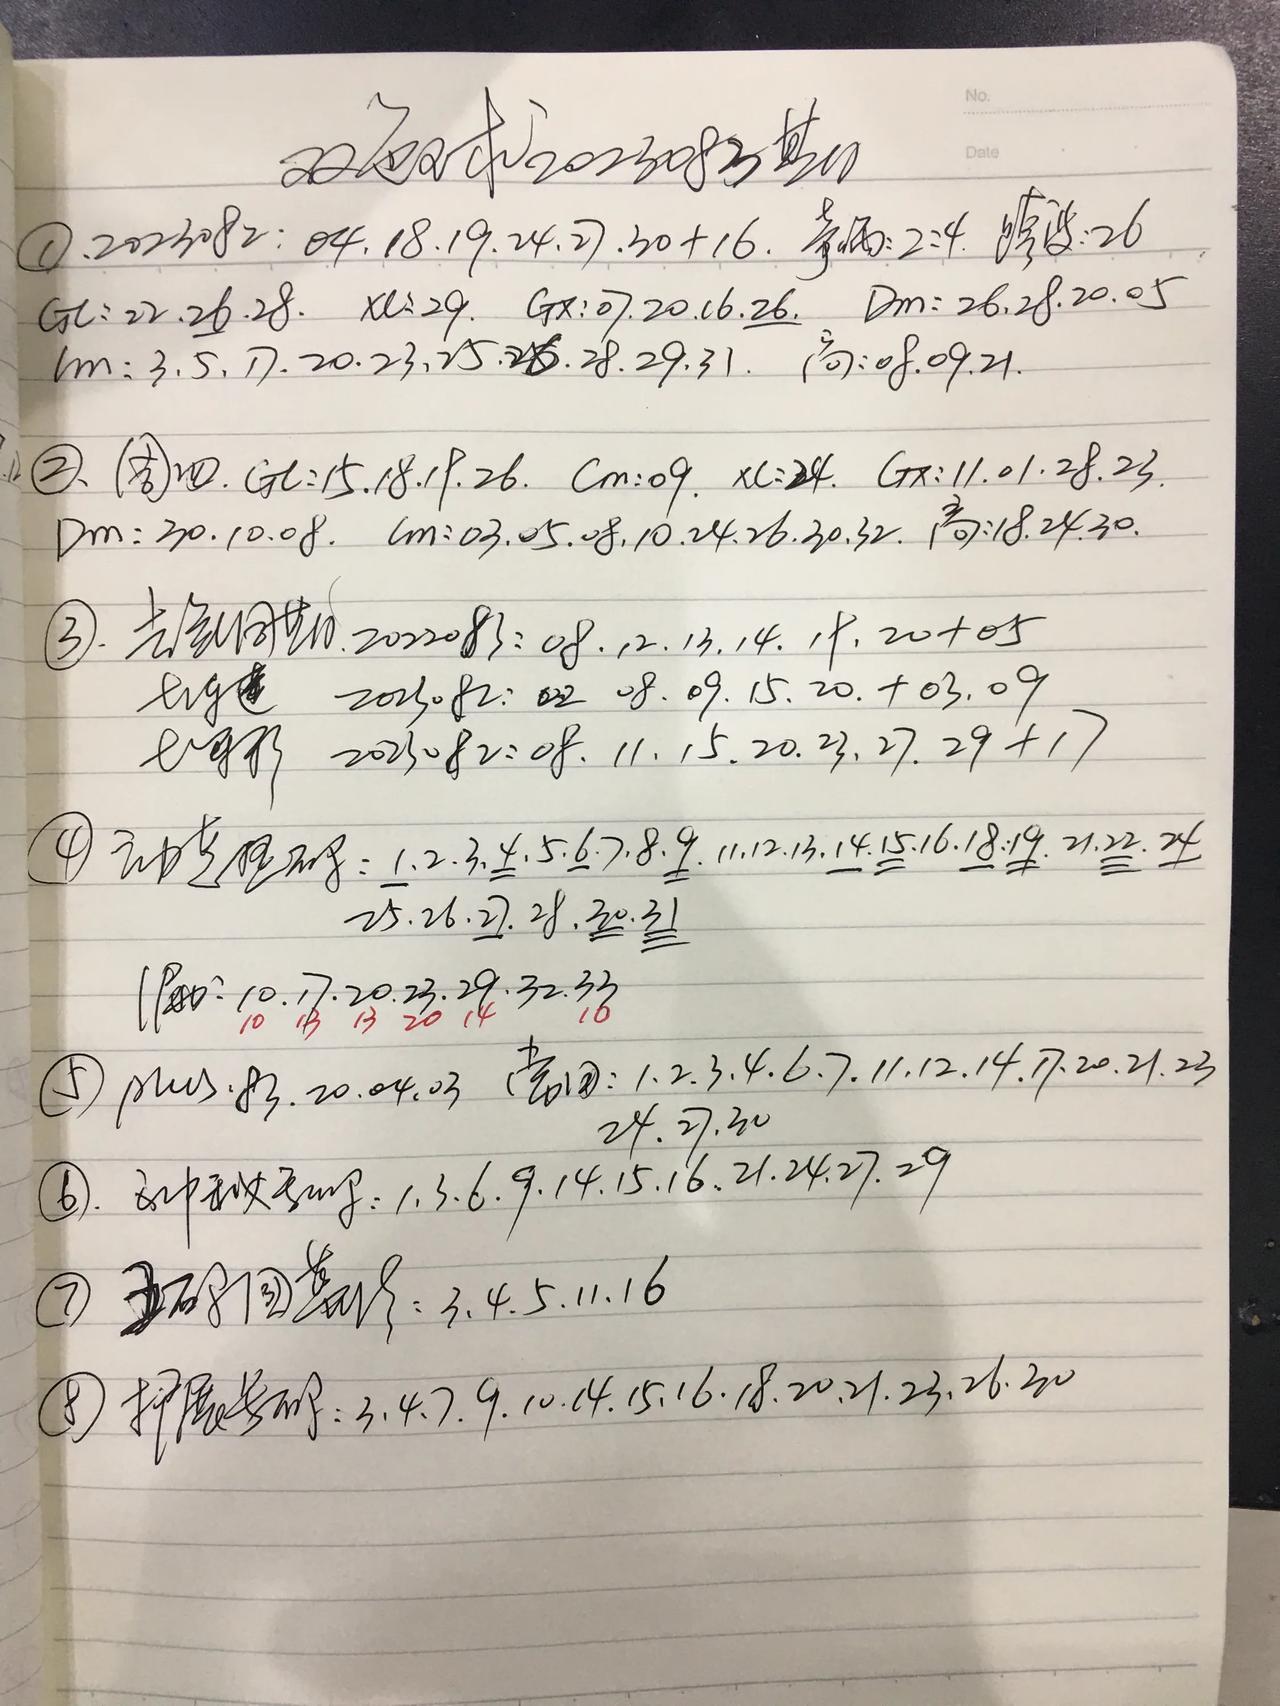 No.
Date
双色球2023083期
①.2023082: 04.18.19.24.27.30+16. 奇偶:2:4 跨度:26
GL:22.26.28. XL:29. GX:07.20.16.26. Dm:26.28.20.05
Lm:3.5.17.20.23.25.26.28.29.31. 高:08.09.21.
②、周四. GL:15.18.19.26. Cm:09. XL:24. GX:11.01.28.23.
Dm:30.10.08. Lm:03.05.08.10.24.26.30.32. 高:18.24.30.
③. 去年同期.2022083: 08.12.13.14.19.20+05
2023082: 02 08.09.15.20.+03.09
2023082: 08.11.15.20.23.27.29+17
④ 号码: 1.2.3.4.5.6.7.8.9.11.12.13.14.15.16.18.19.21.22.24
25.26.27.28.30.31
10.17.20.23.29.32.33
10 13 13 20 14 10
⑤ plus.83.20.04.03 : 1.2.3.4.6.7.11.12.14.17.20.21.23
24.27.30
⑥. 号码: 1.3.6.9.14.15.16.21.24.27.29
⑦ 五码 : 3.4.5.11.16
⑧ 扩展号码: 3.4.7.9.10.14.15.16.18.20.21.23.26.30